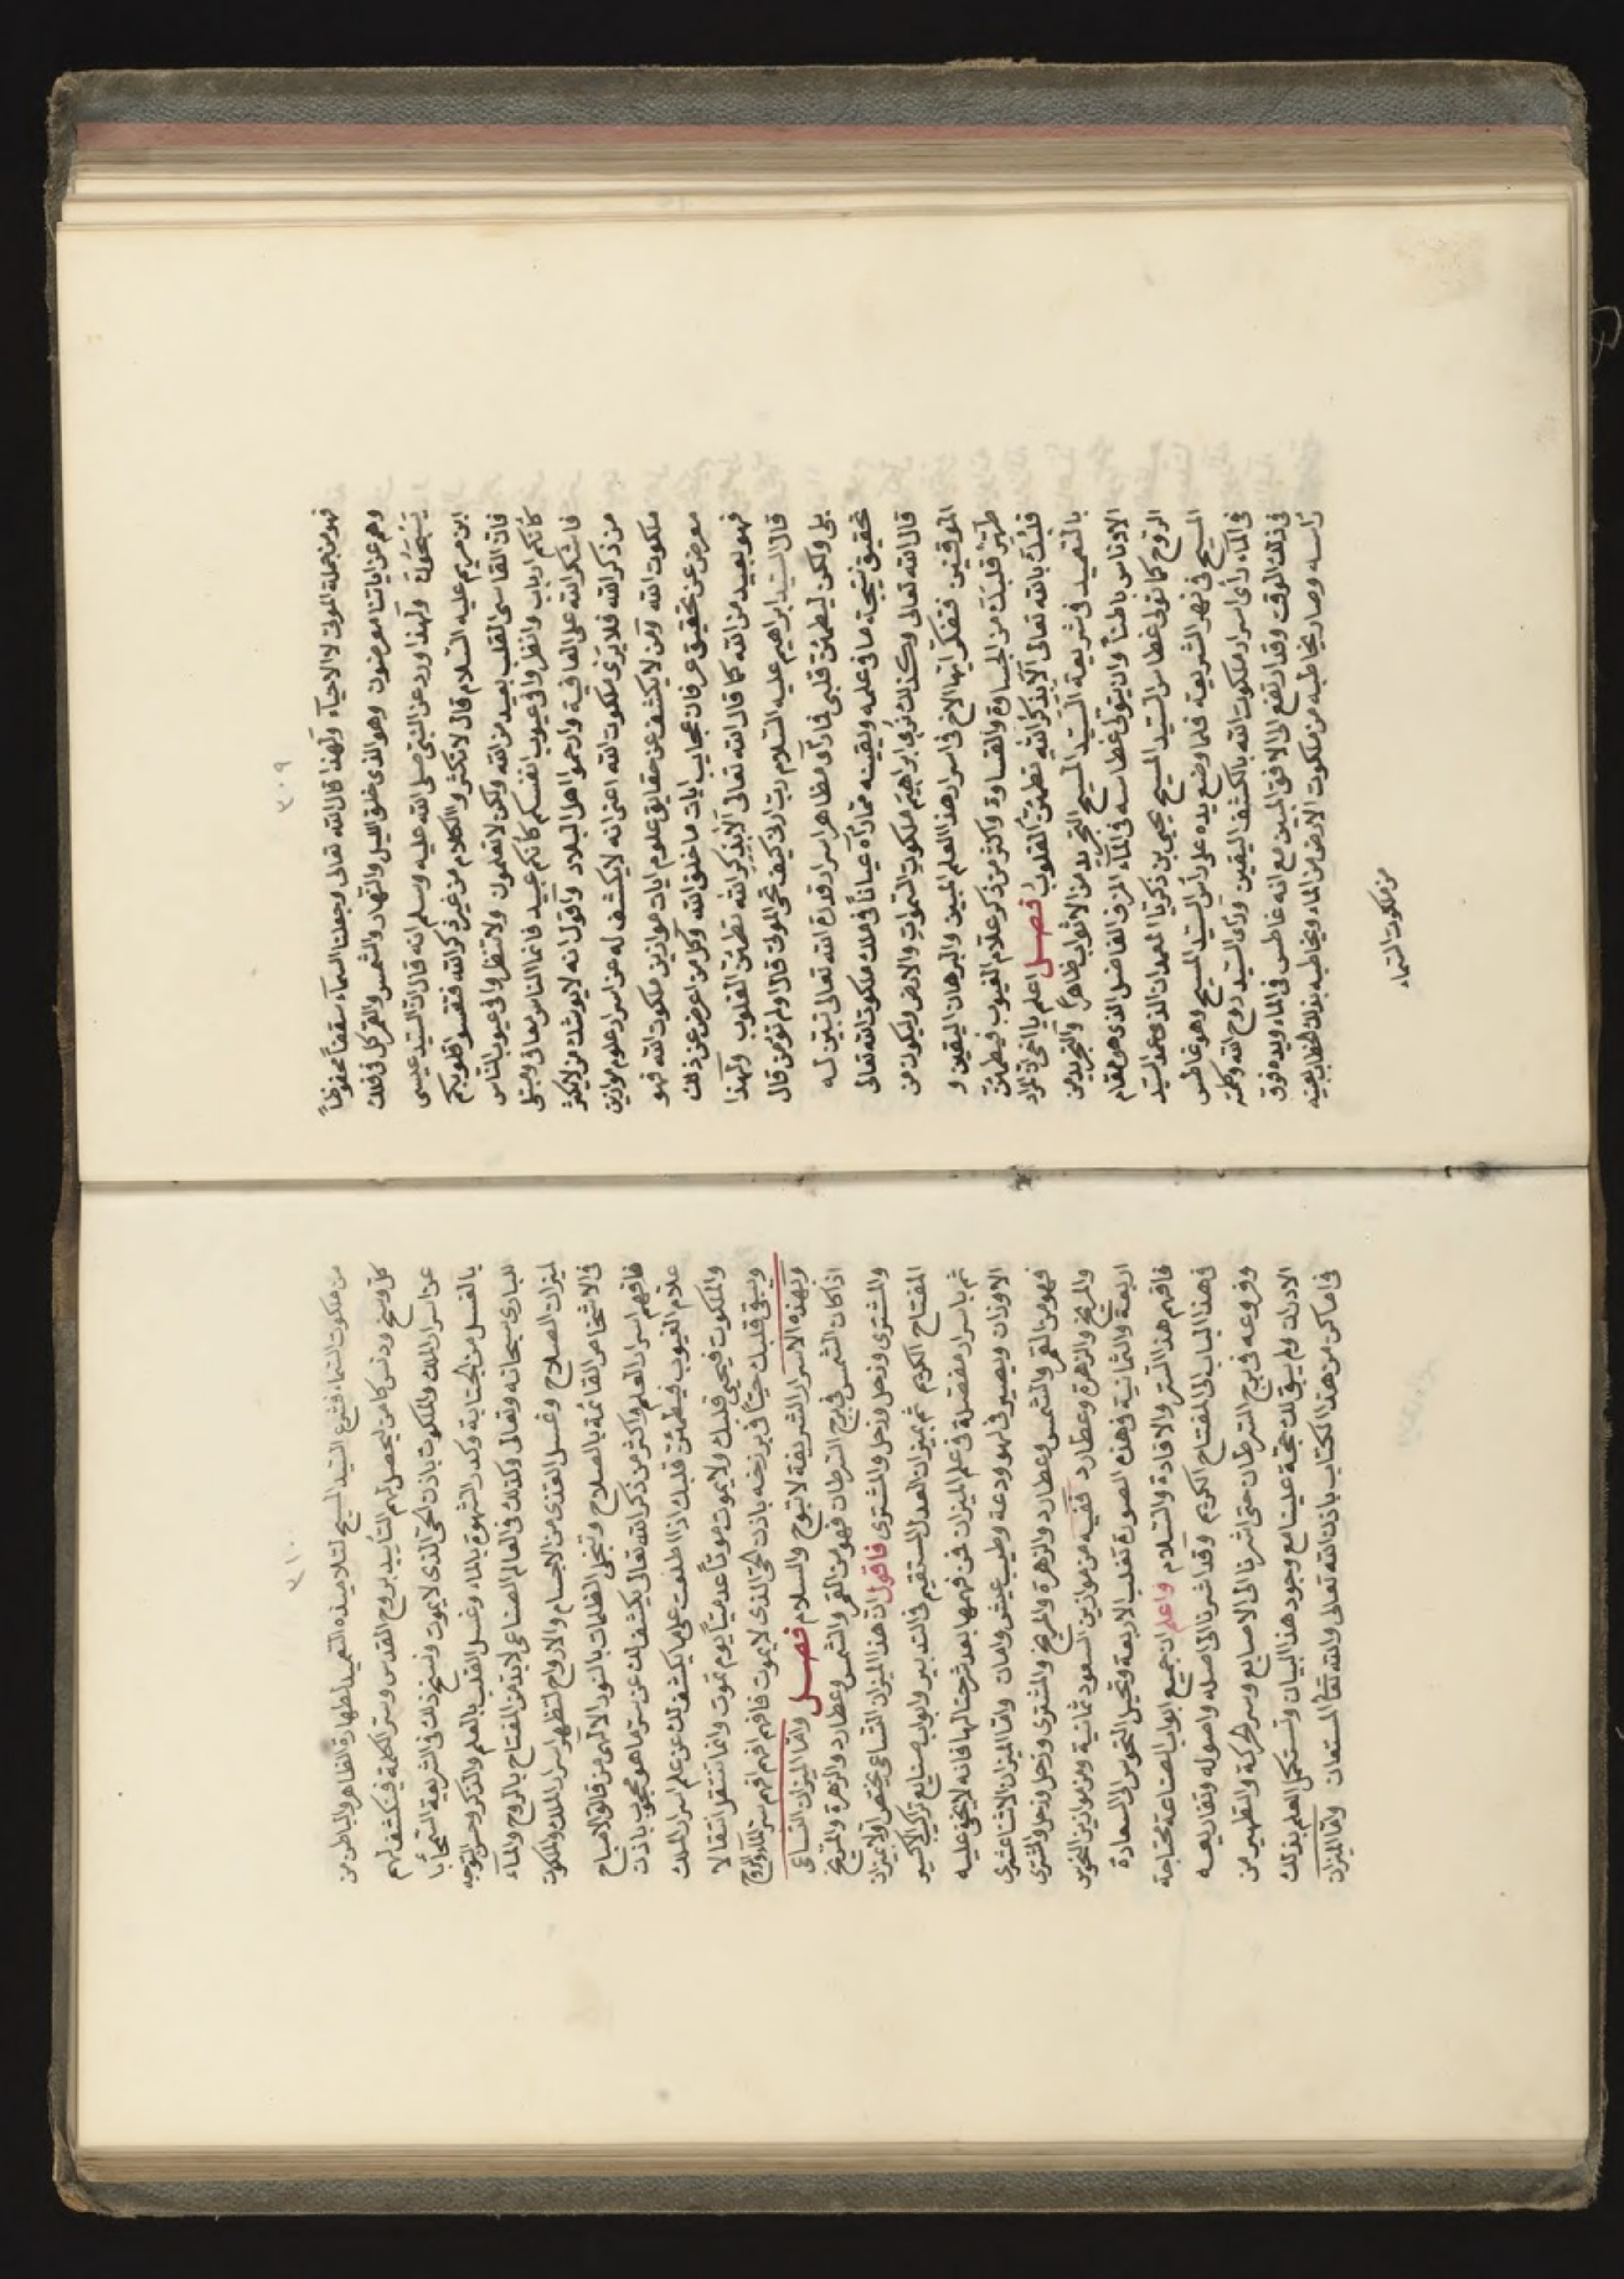 ٣٠٩
فهو من جملة الموتى لا الاحياء ولهذا قال الله تعالى وجعلنا السماء سقفاً محفوظاً
وهم عن اياتنا معرضون وهو الذي خلق الليل والنهار والشمس والقمر كل في فلك
يسبحون ولهذا ورد عن النبي صلى الله عليه وسلم انه قال ان السيد عيسى
ابن مريم عليه السلام قال لا تكثروا الكلام من غير ذكر الله فتقسوا قلوبكم
فان القاسى القلب بعيد من الله ولكن لا تعلمون ولا تنظروا في عيوب الناس
كأنكم ارباب وانظروا في عيوب انفسكم كأنكم عبيد فانما الناس معافى ومبتلى
فاشكر الله على العافية وارحموا اهل البلاد واقول انه لا يوشك من لا يكثر
من ذكر الله فلا يرى ملكوت الله اعنى انه لا ينكشف له عن اسرار علوم موازين
ملكوت الله ومن لا يكشف عن حقايق علوم ايات موازين ملكوت الله فهو
معرض عن تحقيق عرفان عجايب ايات ما خلق الله وكل من اعرض عن ذلك
فهو بعيد من الله كما قال الله تعالى الا بذكر الله تطمئن القلوب ولهذا
قال السيد ابراهيم عليه السلام رب ارنى كيف تحى الموتى قال اولم تؤمن قال
بلى ولكن ليطمئن قلبى فاراه مظاهر اسرار قدرة الله تعالى تبين له
تحقيق نتيجة ما فى علمه ويقينه مما رآه عياناً فى ملك ملكوت الله تعالى
قال الله تعالى وكذلك نرى ابراهيم ملكوت السموات والارض وليكون من
الموقنين فتفكر ايها الاخ فى اسرار هذا العلم المبين والبرهان اليقين و
طهر قلبك من الجساوة والقساوة واكثر من ذكر علام الغيوب فيطمئن
قلبك بالله تعالى الا بذكر الله تطمئن القلوب فصل اعلم يا اخى ان المراد
بالتعميد فى شريعة السيد المسيح التجريد من الاثواب ظاهراً والتجريد من
الادناس باطناً وان يتولى غطاسه فى الماء المزن الفاضل الذى هو مقام
الروح كما تولى غطاس السيد المسيح يحيى بن زكريا المعمدان الذى عمد السيد
المسيح فى نهر الشريعة فلما وضع يده على رأس السيد المسيح وهو غاطس
فى الماء رأى اسرار ملكوت الله بالكشف اليقين ورأى السيد روح الله وكلمته
فى ذلك الوقت وقد ارتفع الى الافق المبين مع انه غاطس فى الماء ويده فوق
رأسه وصار يخاطبه من ملكوت الارض من الماء ويخاطبه بذلك الخطاب بعينه
من ملكوت السماء
٣١٠
من ملكوت السماء فشرع السيد المسيح لتلاميذه التعميد لطهارة الظاهر والباطن من
كل وسخ ودنس كامن ليحصل لهم التأييد بروح القدس وسر الكلمة فينكشف لهم
عن اسرار الملك والملكوت باذن الحى الذى لا يموت ونسخ ذلك فى الشريعة
بالغسل من الجنابة وكدر الشهوة بالماء وغسل القلب بالعلم والذكر وحسن التوجه
للبارى سبحانه وتعالى وكذلك فى العالم الصناعى لا بد من المفتاح بالروح والماء
لميزان الصلاح وغسل القذى من الاجسام والارواح لتظهر اسرار الملك والملكوت
فى الاشخاص القائمة بالصلاح وتنجلى الظلمات بالنور الالهى من فالق الاصباح
فافهم اسرار العلم واكثر من ذكر الله تعالى يكشف لك عن سر ما هو محجوب باذن
علام الغيوب فيطمئن قلبك اذا اطلعت على ما يكشف لك عن علم اسرار الملك
والملكوت فيحيى قلبك ولا يموت موتاً عدمياً يوم تموت وانما تنتقل انتقالا
ويبقى قلبك حياً فى برزخه باذن الحى الذى لا يموت فافهم افهم افهم سر الماء والروح
وبهذه الاسرار الشريفة لا تبوح والسلام فصل واما الميزان التساعى
اذا كان الشمس فى برج السرطان فهو من القمر والشمس وعطارد والزهرة والمريخ
والمشترى وزحل وزحل والمشترى فاقول ان هذا الميزان التساعى يختص اولا بميزان
المفتاح الكريم ثم بميزان العدل المستقيم فى التدبير وابواب صنايع تراكيب الاكسير
ثم باسرار مفصلة فى علم الميزان فمن فهمها بعد شرحنا لها فانه لا يخفى عليه
الاوزان ويصير فى لهو ودعة وطيب عيش وامان واما الميزان الاثنا عشرى
فهو من القمر والشمس وعطارد والزهرة والمريخ والمشترى وزحل وزحل والمشترى
والمريخ والزهرة وعطارد ففيه من موازين السعود ثمانية ومن موازين النحوس
اربعة والثمانية فى هذه الصورة تغلب الاربعة وتحيل النحوس الى السعادة
فافهم هذا السر والافادة والسلام واعلم ان جميع ابواب الصناعة محتاجة
فى هذا الباب الى المفتاح الكريم وقد اشرنا الى اصله واصوله وتفاريعه
وفروعه فى برج السرطان حتى اشرنا الى الاصابع وسر الحركة والتطهير من
الادران ولم يبق لك حجة علينا مع وجود هذا البيان وتستكمل العلم بذلك
فى اماكن من هذا الكتاب باذن الله تعالى والله تعالى المستعان واما الميزان